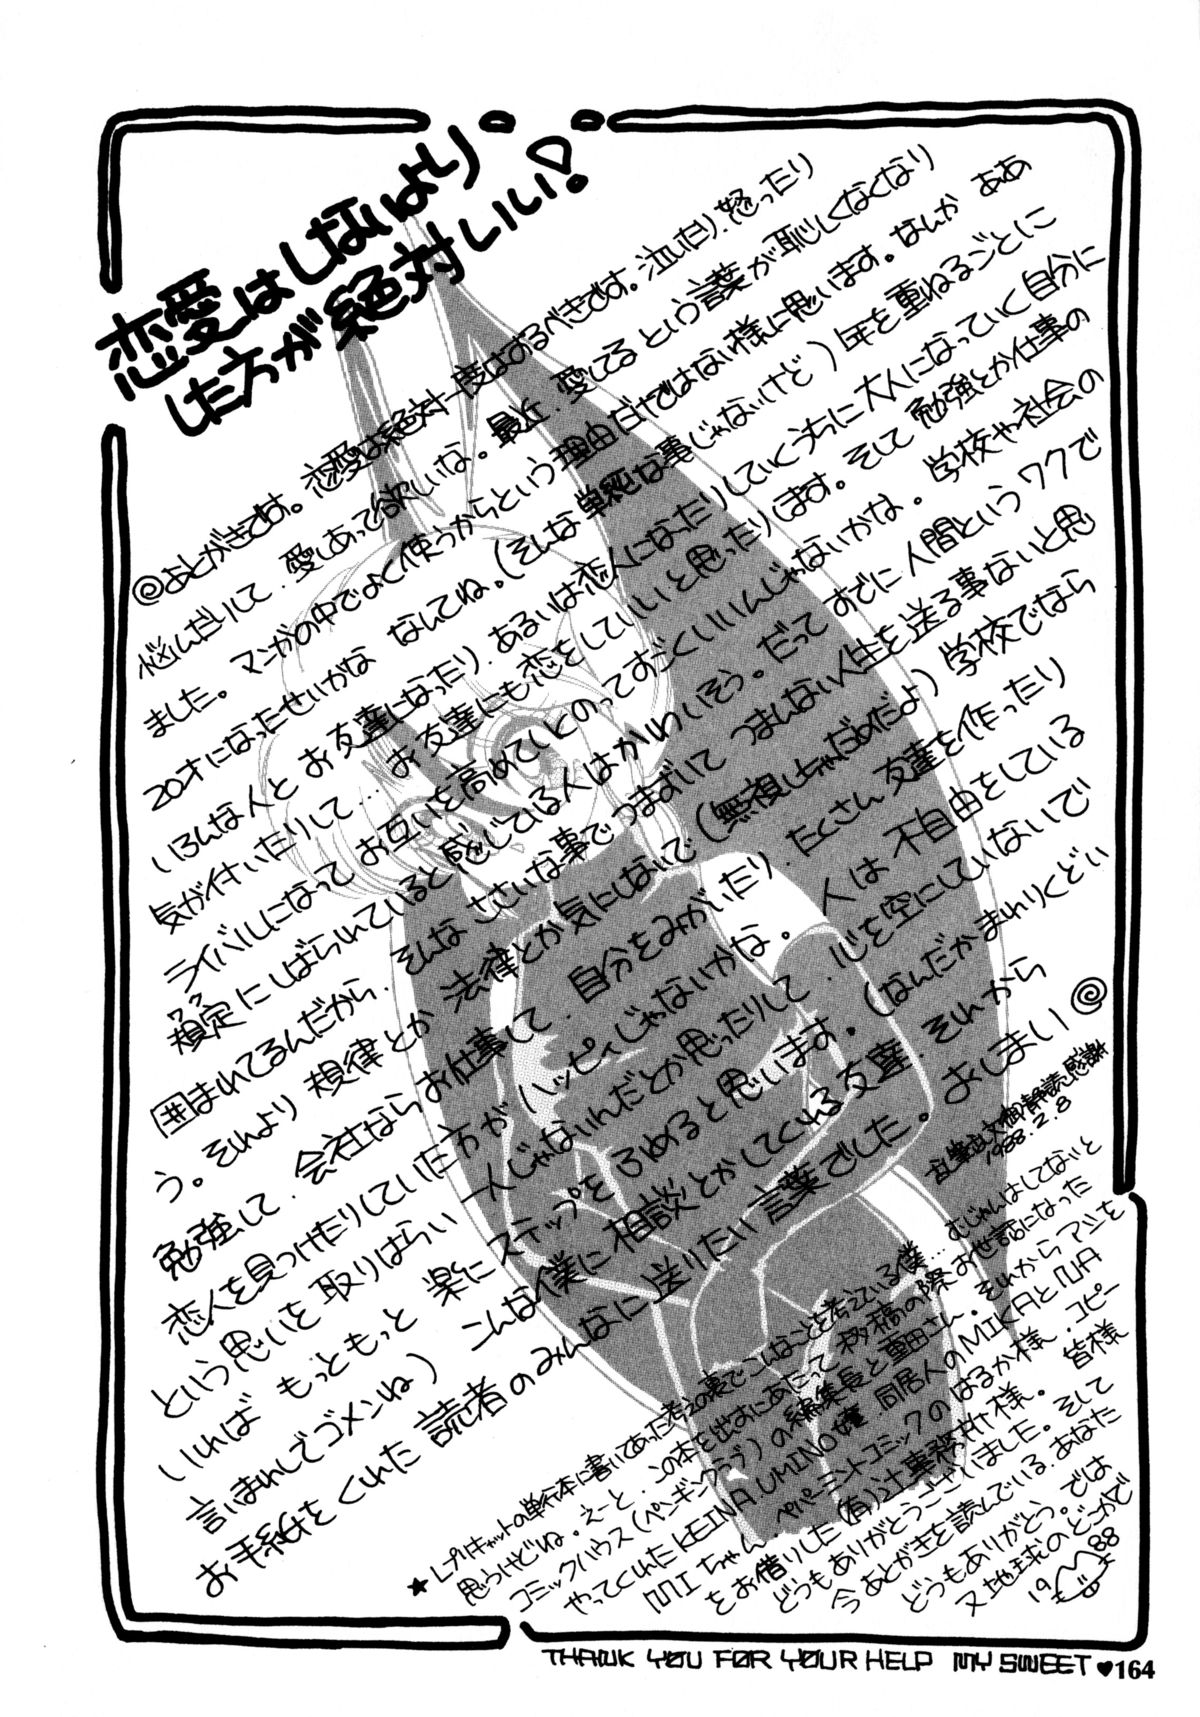 恋愛はしないより
した方が絶対いい!
◎あとがきです。恋愛は絶対一度はするべきです。泣いたり、怒ったり
悩んだりして、愛しあって欲しいな。最近、愛してるという言葉が恥しくなくなり
ました。マンガの中でよく使うからという理由だけではない様に思います。なんか ああ
20才になったせいかな なんてね。(そんな単純な事じゃないけど)年を重ねるごとに
いろんな人とお友達になったり、あるいは恋人になったりしていくうちに大人になっていく自分に
気が付いたりして…お友達にも恋をしていいと思ったりします。そして勉強とか仕事の
ライバルになってお互いを高めていとのってすごくいいんじゃないかな。学校や社会の
規定にしばられていると感じている人はかわいそう。だってすでに人間というワクで
囲まれてるんだから、そんなささいな事でつまづいてつまんない人生を送る事ないと思
う。それより 規律とか 法律とか気にしないで(無視しちゃだめだよ)学校でなら
勉強して、会社ならお仕事して、自分をみがいたり、たくさん友達を作ったり
恋人を見つけたりしていた方がハッピィじゃないかな。人は不自由をしている
という思いを取りはらい 一人じゃないんだとか思ったりして、心を空にしていないで
いれば もっともっと 楽にステップをふめると思います。(なんだかまわりくどい
言いまわしでゴメンね)こんな僕に相談とかしてくれる友達、それから
お手紙をくれた読者のみんなに送りたい言葉でした。おしまい◎
乱筆乱文御静読感謝
1988.2.8
★レプリキャットの単行本に書いてあった考えの裏でこんなことを考えている僕…むじゅんはしてないと
思うけどね。えーと、この本を出すにあたって移稿の際お世話になった
コミックハウス(ペンギンクラブ)の編集長と重田さん。それからアシを
やってくれたKEINA.UMINO嬢、同居人のMIKAとNA
MIちゃん、ペパーミントコミックのはるか様、コピー
をお借りした(有)辻事務所様。皆様
どうもありがとうございました。そして
今あとがきを読んでいる、あなた
どうもありがとう。では
又地球のどこかで
19 88
THANK YOU FOR YOUR HELP MY SWEET ♥164